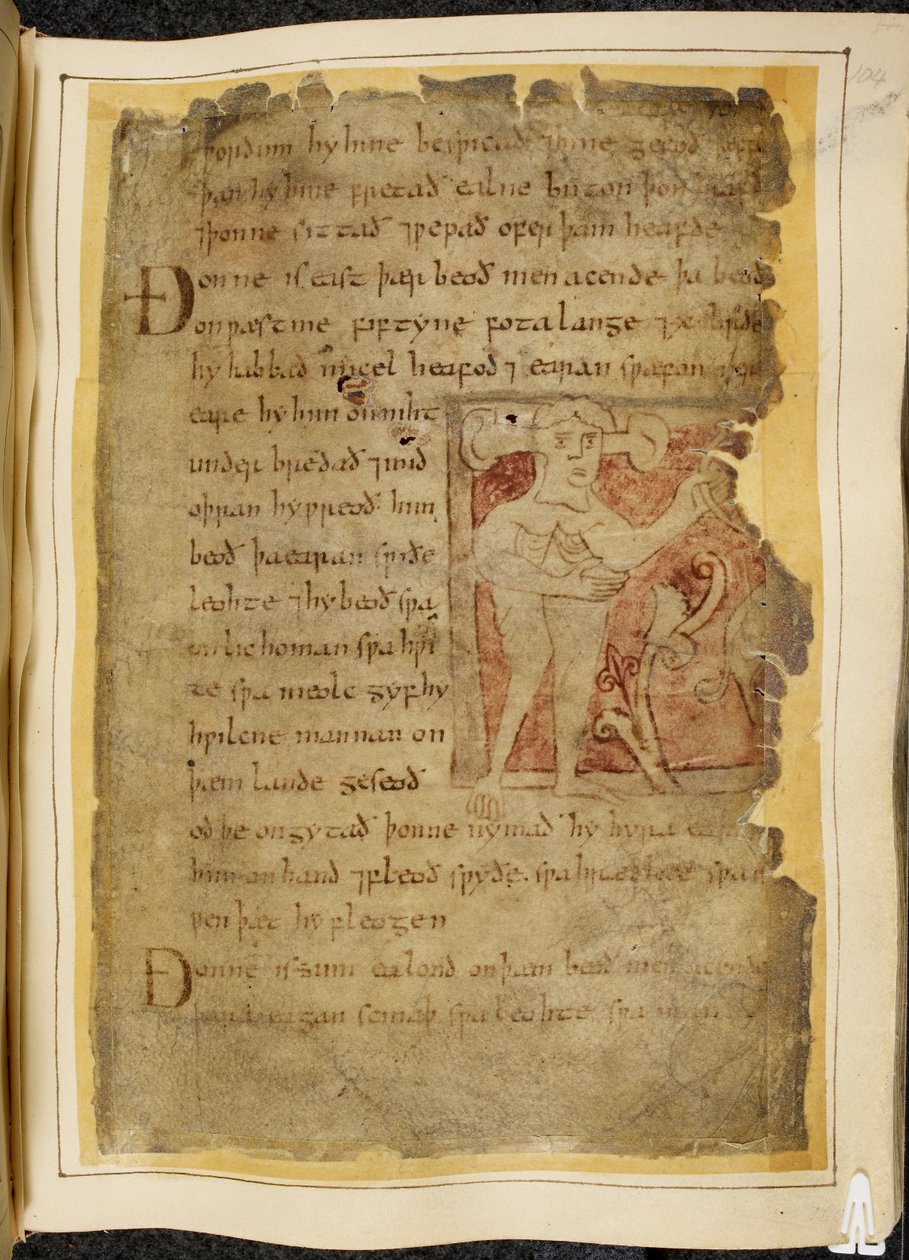 104
ƿordum hy hine besƿicað ⁊ hine gefoð
þan hy hine fretað ealne buton þon
⁊ þonne sittað ⁊ ƿepað ofer þam heafde
Ðonne is east þær beoð men acende þa beoð
on ƿæstme fiftyne fota lange ⁊ x on
hy habbað micel heafod ⁊ earan sƿa fon
eare hy him on niht
under bredað ⁊ mid
oþran hy ƿreoð him
beoð þa earan sƿiðe
leohte ⁊ hy beoð sƿa
on lichoman sƿa hƿi
te sƿa meolc gyf hy
hƿilcne mannan on
þæm lande geseoð
oð þe ongytað þonne nymað hy hyra
him on hand ⁊ fleoð sƿyðe sƿa hrædlice sƿa
ƿen þæt hy fleogen
Ðonne is sum ealond on þæm beoð men acende
þara eagan scinaþ sƿa leohte sƿa